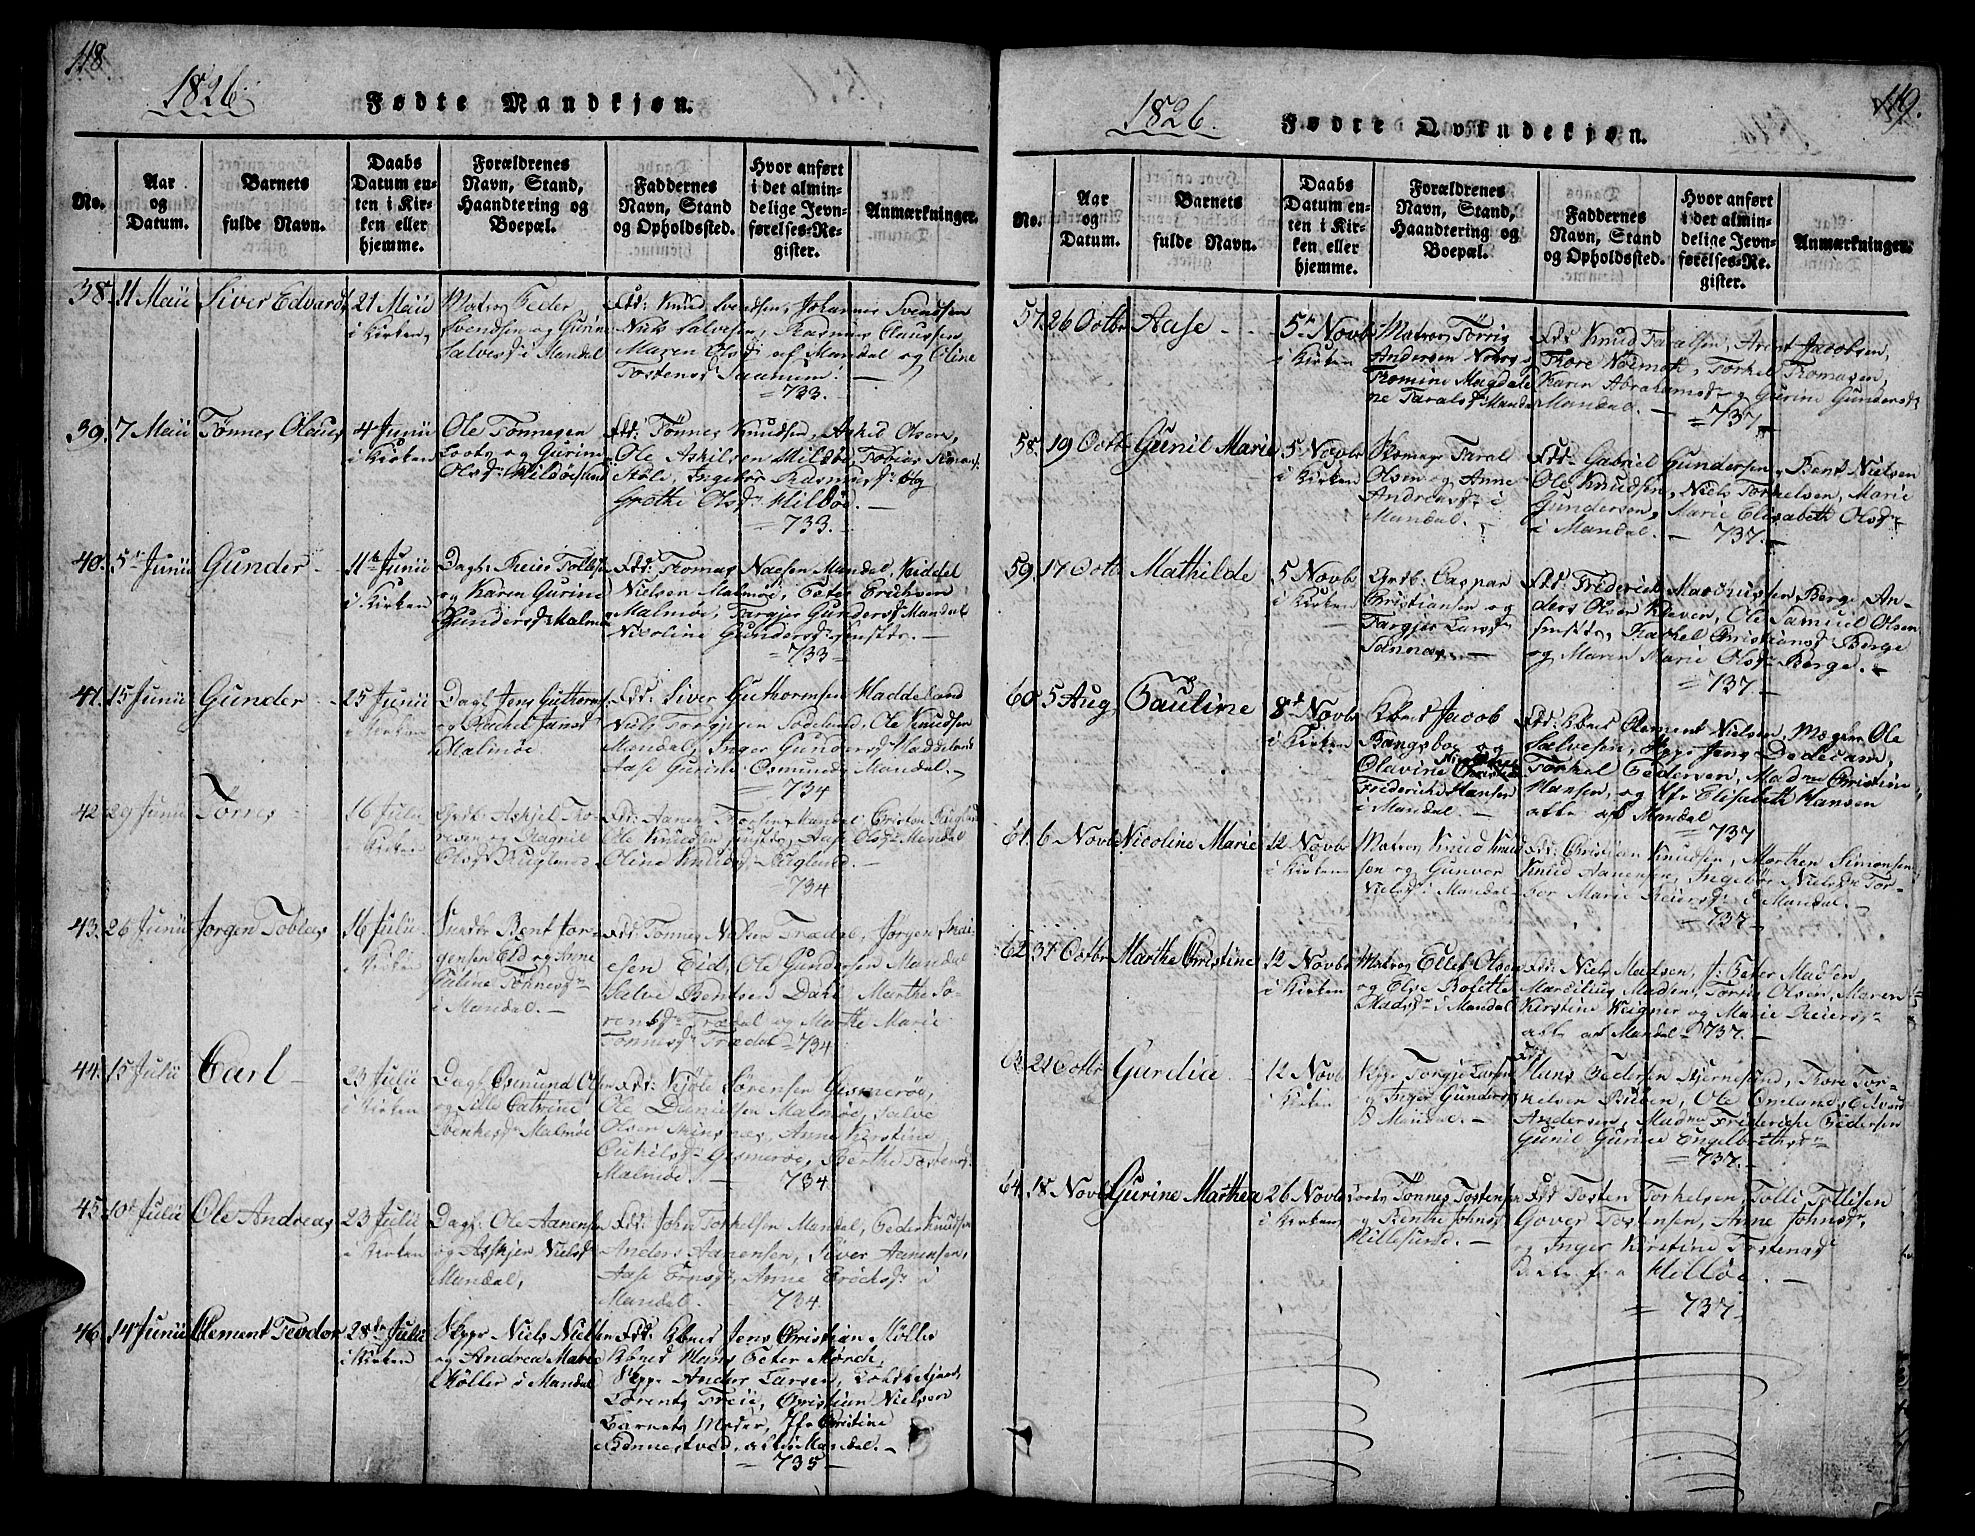 118
1826.
Fødte Mandkjøn.
No.
Aar og Datum.
Barnets fulde Navn.
Daabs Datum enten i Kirken eller hjemme.
Forældrenes Navn, Stand, Haandtering og Boepæl.
Faddernes Navn, Stand og Opholdssted.
Hvor anført i det almindelige Jevnførelses-Register.
Anmærkninger.
38. 11 Maii Siver Edvard 21 Maii i Kirken,
Matros Peder Svendsen og Gurine Salvesd. i Mandal
Fad: Knud Svendsen, Johannes Svendsen
Niels Salvesen, Rasmus Claussen
Maren Olsd. af Mandal og Oline
Tostensd. Saanum. —
= 733.
39. 7 Maii Tønnes Olaus 4 Junii i Kirken
Ole Tønnesen Loots og Gurine Olsd.
Fad: Tønnes Knudsen, Askil Olsen,
Ole Askilsen Hilløe, Tobias
Støle, Ingebor Rasmusd. og
Grethe Olsd. Hilløe. —
= 733. —
40. 5 Junii Gunder — 11te Junii i Kirken
Dagl: Reier Tollefs. og Karen Gurine Gundersd. Malmøe
Fad: Thomas Naesen Mandal, Kiddel
Nielsen Malmøe, Peter Erichsen
Malmøe, Targjer Gundersd. Mandal
Nicoline Gundersd. —
= 733 =
41. 15 Junii Gunder — 25 Junii i Kirken
Dagl. Jens Guthorms. og Rachel Jansd. Malmøe
Fad: Siver Guthormsen Haddeland
Niels Torgjusen Sødelund, Ole Knudsen
Mandal, Inger Gundersd. Haddeland
Aase Gurine Osmunds. Mandal. —
= 734
42. 29 Junii Tørres 16 Julii i Kirken
Askjel Thoresen og Ragnil Olsd.
Fad: Aanen Mandal, Christen
Ole Knudsen Aase Olsd. Mandal
Oline Knudsd.
= 734
43. 26 Junii Jørgen Tobias 16 Julii i Kirken
Bent Jørgensen Eid og Anne Tønnesd. i Mandal. —
Fad: Tønnes Olsen Trædal, Jørgen
Eid, Ole Gundersen Mandal
Salve Bentsen Dahl Marthe Sørensd. Trædal og Marthe Marie
Tønnesd. Trædal = 734.
44. 15 Julii Carl — 23 Julii i Kirken
Dagl. Osmund Olsen og Sille Catrine Svenkesd. Malmøe
Fad: Kjøle Sørensen Gismerøe,
Ole Danielsen Malmøe, Salve
Olsen Skinsnæs, Anne Kirstine
Eukilsd. Gismerøe, Berthe Tostensd.
Malmøe. — 734
45. 10 Julii Ole Andreas 23 Julii i Kirken
Dagl: Ole Aanensen og Askjer Nielsd. Mandal,
Fad: John Torkelsen Mandal, Peder Knudsen
Anders Aanensen, Siver Aanensen,
Aase Anne Erichsd. i
Mandal. — 734
46. 14 Junii Clement Teodor 28de Julii i Kirken
Skipr. Niels Nielsen og Andrea Marie Møller i Mandal
Fad: Kbmd. Jens Christian Møller
Kbmd Hans Peter Mørch,
Skipr Anders Larsen, Toldbetjent
Lorents Freie, Christian Nielsen
Barnets Moder, Jfr. Christine
Bennestved, alle i Mandal. —
= 735 —
119.
1826.
Fødte Qvindekjøn.
No.
Aar og Datum.
Barnets fulde Navn.
Daabs Datum enten i Kirken eller hjemme.
Forældrenes Navn, Stand, Haandtering og Boepæl.
Faddernes Navn, Stand og Opholdssted.
Hvor anført i det almindelige Jevnførelses-Register.
Anmærkninger.
57. 26 Octbr Aase — 5 Novbr i Kirken
Matros Tørris Andersen og Thomine Magdalene Taralsd. Mandal
Fad: Knud Taralsen, Arent Jacobsen,
Thore Torkel Thomasen,
Karen Abrahamsd. og Gurine Gundersd.
Mandal. — = 737.
58. 19 Octbr Gunil Marie 5 Novbr i Kirken
Skomager Taral Olsen og Anne Andreasd. i Mandal. —
Fad: Gabriel Gundersen, Bent Nielsen
Ole Knudsen, Niels Torkelsen, Marie
Gundersen, Marie Elisabeth Olsd.
i Mandal. — 737. —
59. 17 Octbr Mathilde 5 Novbr i Kirken
Caspar Christiansen og Targjer Larsd. Sannæs. —
Fad: Friderich Mardriussen Berge, Anders Olsen Kleven, Ole Samuel Olsen
Rachel Christiansd. Berge
og Maren Marie Olsd. Berge. —
= 737 —
60. 5 Aug. Pauline 8 Novbr i Kirken
Kbmd. Jacob Bangsboe og Olavine Frideriche Hansen i Mandal. —
Fad: Kbmd Clement Nielsen, Mægler Ole
Salvesen, Skipr Jens Dedekam,
Torkel Pedersen, Madme Christine
Hansen, og Jfr. Elisabeth Hansen
alle af Mandal
737
61. 6 Novbr Nicoline Marie 12 Novbr i Kirken
Matros Knud Knudsen og Gunvor Nielsd. i Mandal
Fad: Christian Knudsen, Morthen Simonsen
Knud Aanensen, Ingebor Nielsd. Torbor Marie Reiersd. i Mandal. —
= 737. —
62. 31 Octbr Marthe Christine 12 Novbr i Kirken
Matros Ellef Olsen og Else Bolette Madsd. i Mandal
Fad: Niels Madsen, J. Peter Madsen,
Marcelius Madsen, Tørris Olsen, Maren
Kirstine Wigner og Marie Reiersd.
alle af Mandal = 737. —
63. 21 Octbr Gurdice 12 Novbr i Kirken
Skipr. Torgje Larsen og Inger Gundersd. Mandal. —
Fad: Hans Pedersen Hjernesund, Thore Torkelsen Buøen, Ole Omland, Edvard
Andersen, Madme Friderikke Pedersen
Gunil Gurine Engelbrethsd.
= 737. —
64. 18 Novbr Gurine Marthea 26 Novbr i Kirken
Loots Tønnes Tostensen og Benthe Johnsd. Hillesund. —
Fad Tosten Torkelsen, Tolle Tollisen
Gover Tostensen, Anne Johnsd.
og Inger Kirstine Tostensd.
fra Hilløe. —
= 737. —